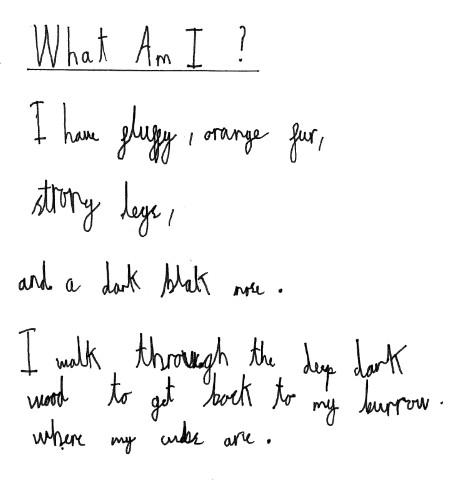 What Am I ?
I have fluffy, orange fur,
strong legs,
and a dark blak nose.
I walk through the deep dark
wood to get back to my burrow.
where my cubs are.